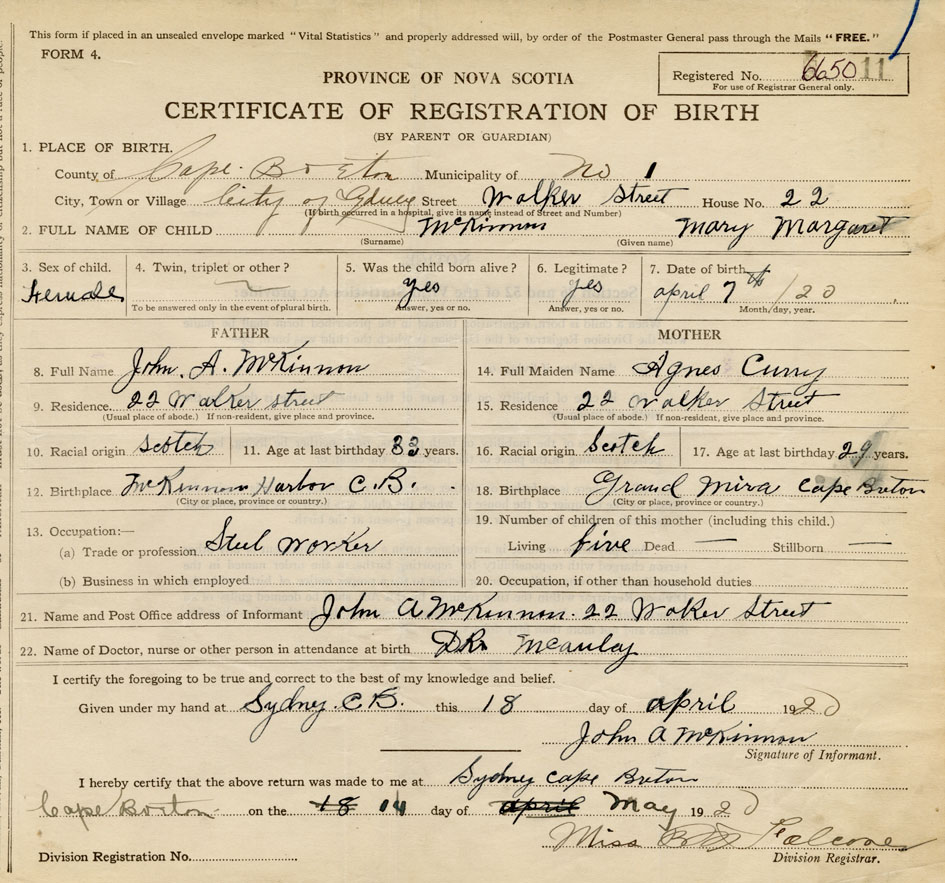 This form if placed in an unsealed envelope marked "Vital Statistics" and properly addressed will, by order of the Postmaster General pass through the Mails "FREE."
FORM 4.
PROVINCE OF NOVA SCOTIA
Registered No. 665011
For use of Registrar General only.
CERTIFICATE OF REGISTRATION OF BIRTH
(BY PARENT OR GUARDIAN)
1. PLACE OF BIRTH.
County of Cape Breton Municipality of No 1
City, Town or Village City of Sydney Street Walker Street House No. 22
(If birth occurred in a hospital, give its name instead of Street and Number)
2. FULL NAME OF CHILD McKinnon Mary Margaret
(Surname) (Given name)
3. Sex of child. 4. Twin, triplet or other? 5. Was the child born alive? 6. Legitimate? 7. Date of birth
Female yes yes april 7th /20
To be answered only in the event of plural birth. Answer, yes or no. Answer, yes or no. Month/day, year.
FATHER MOTHER
8. Full Name John A. McKinnon 14. Full Maiden Name Agnes Curry
9. Residence. 22 Walker street 15. Residence 22 walker Street
(Usual place of abode.) If non-resident, give place and province. (Usual place of abode.) If non-resident, give place and province.
10. Racial origin Scotch 11. Age at last birthday 33 years. 16. Racial origin Scotch 17. Age at last birthday 29 years.
12. Birthplace McKinnon Harbor C.B. 18. Birthplace Grand Mira Cape Breton
(City or place, province or country.) (City or place, province or country.)
13. Occupation:— 19. Number of children of this mother (including this child.)
(a) Trade or profession Steel Worker Living five Dead — Stillborn —
(b) Business in which employed 20. Occupation, if other than household duties
21. Name and Post Office address of Informant John A McKinnon. 22 Walker Street
22. Name of Doctor, nurse or other person in attendance at birth DR. McAulay
I certify the foregoing to be true and correct to the best of my knowledge and belief.
Given under my hand at Sydney. C B. this 18 day of april 1920
John A McKinnon
Signature of Informant.
I hereby certify that the above return was made to me at Sydney Cape Breton
Cape Breton on the 18 day of april May 1920
Miss Falconer
Division Registration No. Division Registrar.